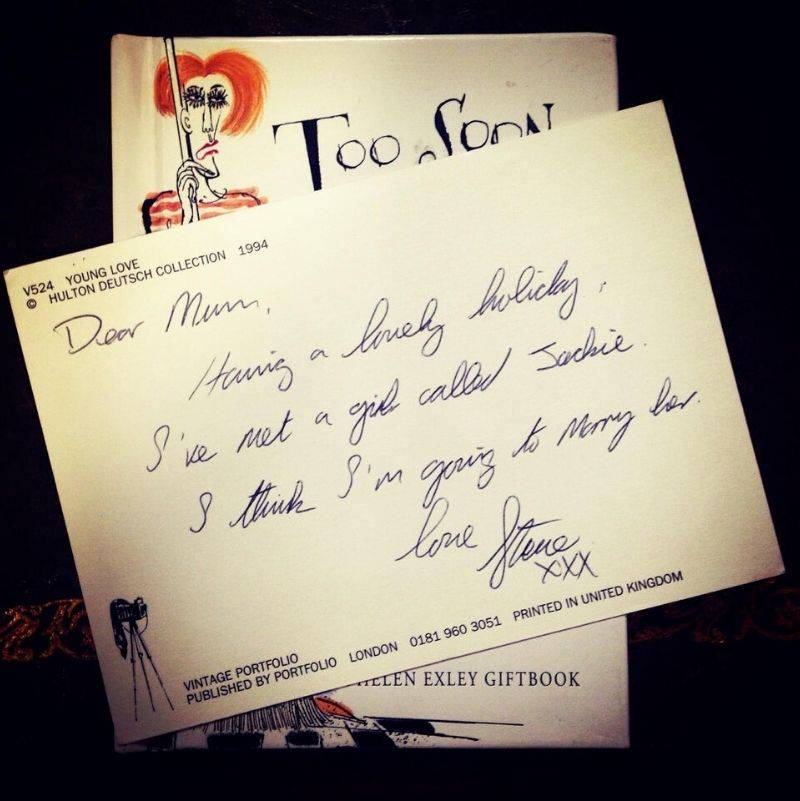 TOO SOON
V524 YOUNG LOVE
© HULTON DEUTSCH COLLECTION 1994
Dear Mum,
Having a lovely holiday,
I've met a girl called Jackie.
I think I'm going to marry her.
love Steve
XXX
VINTAGE PORTFOLIO
PUBLISHED BY PORTFOLIO LONDON 0181 960 3051 PRINTED IN UNITED KINGDOM
HELEN EXLEY GIFTBOOK